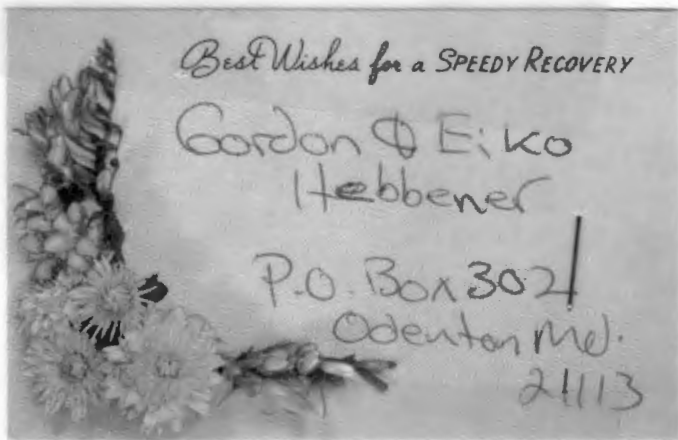 Best Wishes for a SPEEDY RECOVERY
Gordon & Eiko
Hebbener
P.O. Box 302
Odenton Md.
21113